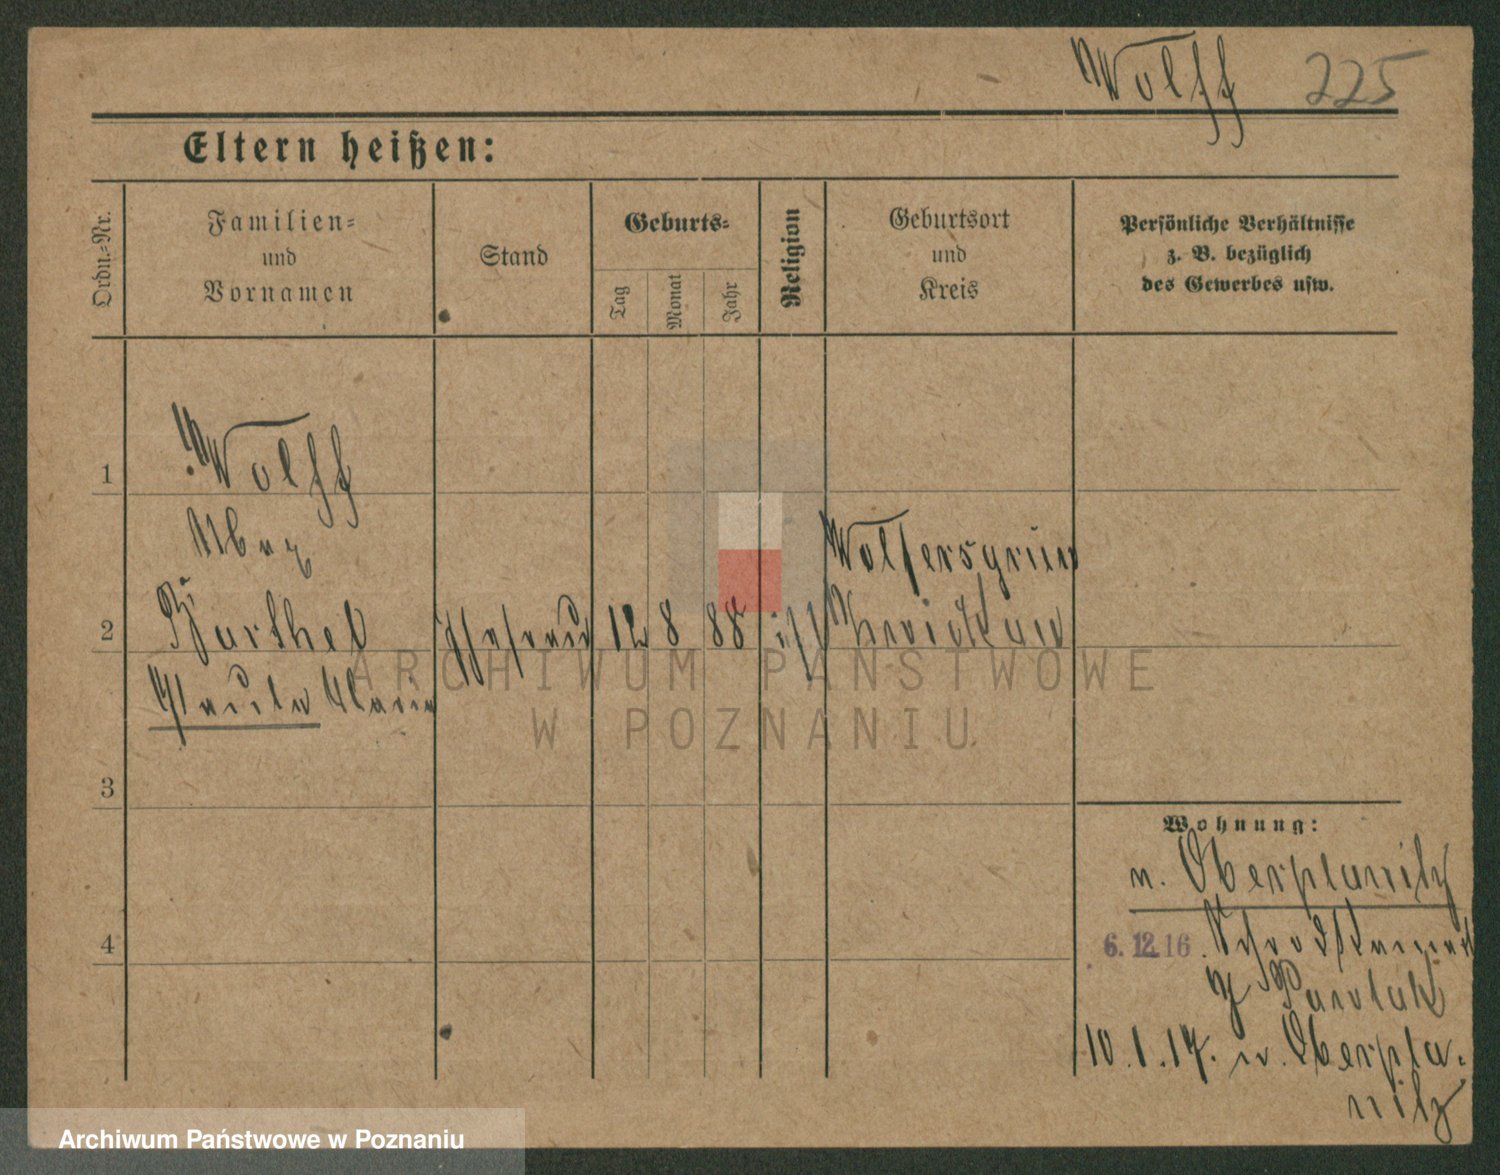 Wolff 225
Eltern heißen:
Ordn.-Nr.
Familien-
und
Vornamen
Stand
Geburts-
Tag
Monat
Jahr
Religion
Geburtsort
und
Kreis
Persönliche Verhältnisse
z. B. bezüglich
des Gewerbes usw.
1 Wolff
Wolfersgrün
2 Barthel Ehefrau 12 8 88 Zwickau
Paula Clara
3
4
Wohnung:
n. Oberplanitz
6.12.16
Pawlak
10.1.17. n. Oberpla-
nitz
ARCHIWUM PAŃSTWOWE
W POZNANIU
Archiwum Państwowe w Poznaniu